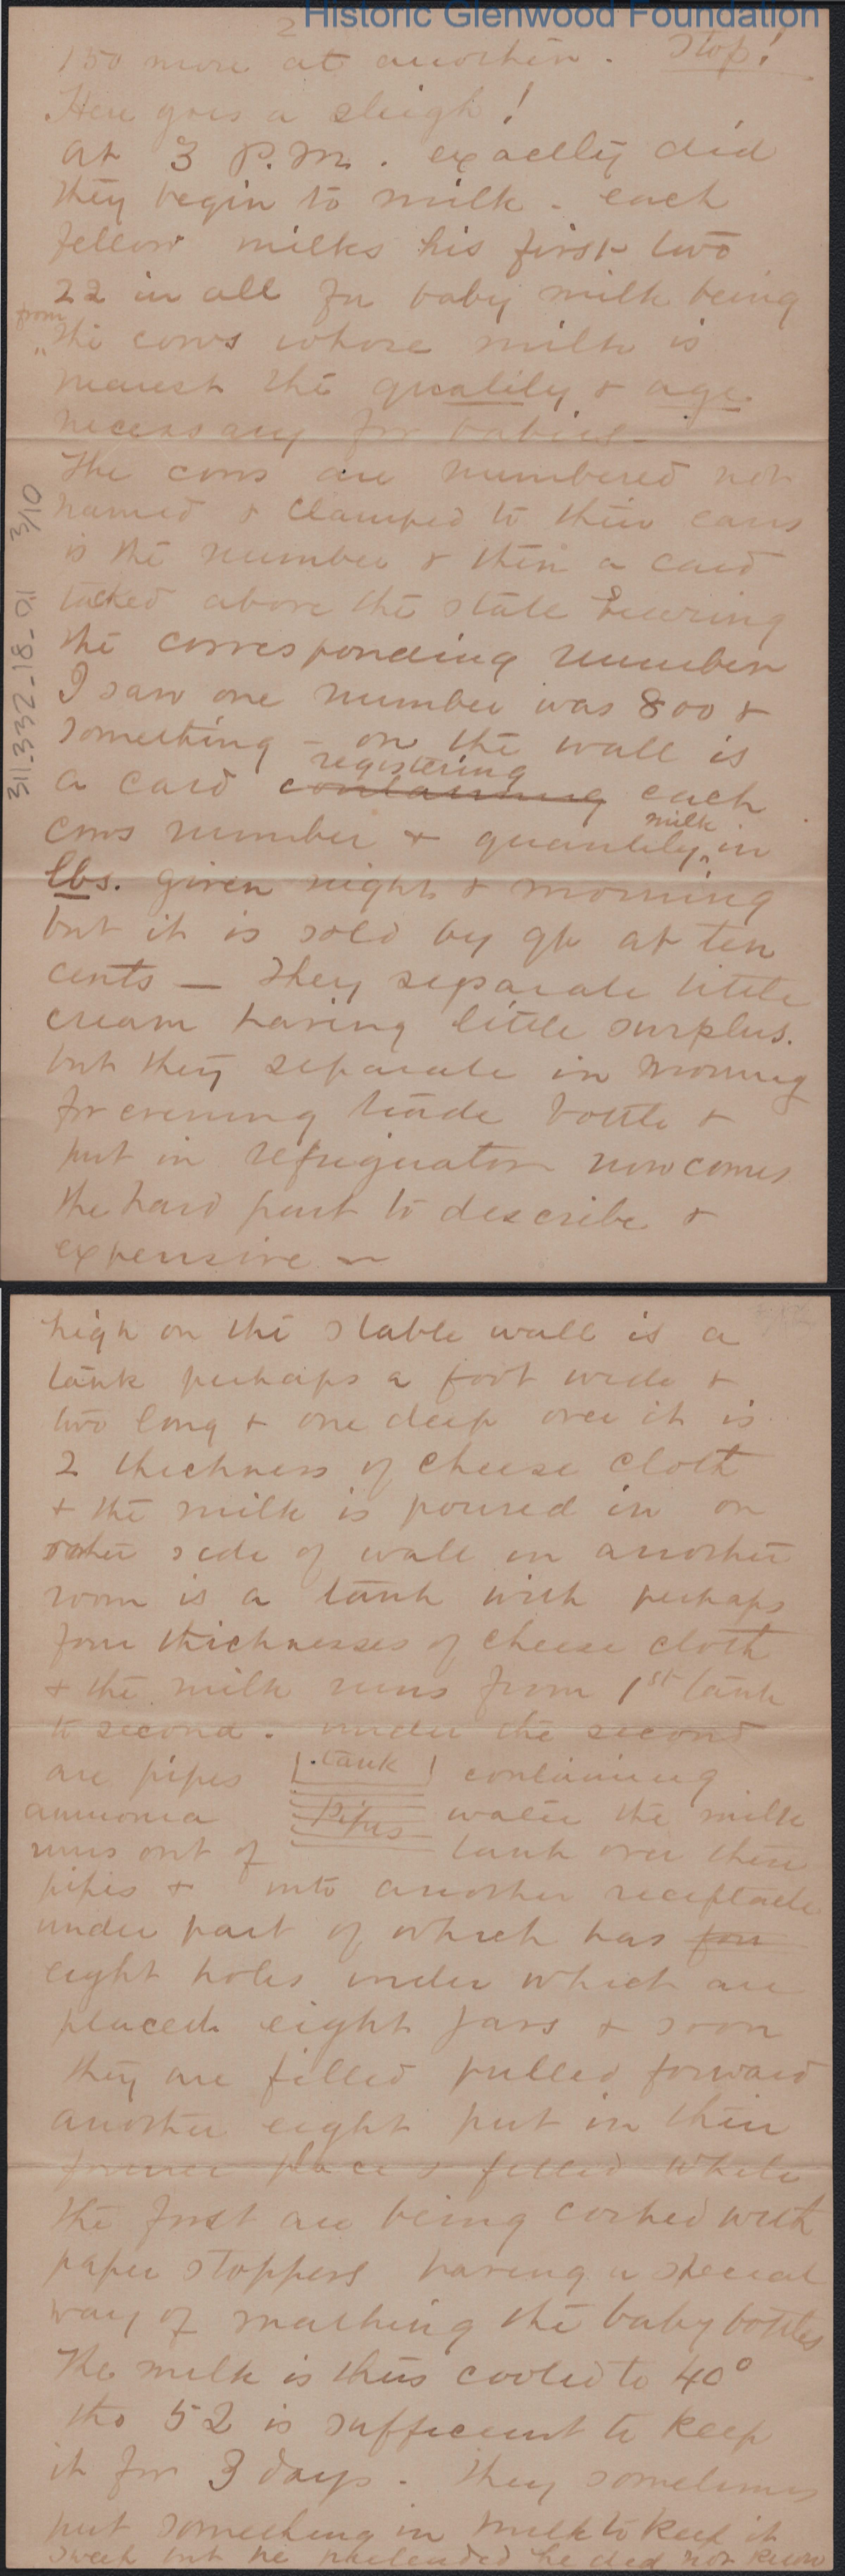 Historic Glenwood Foundation
2
150 more at another. Stop!
Here goes a sleigh!
at 3 P.M. exactly did
they begin to milk - each
fellow milks his first two
22 in all for baby milk being
from
" the cows whose milk is
nearest the quality & age
necessary for babies -
The cows are numbered not
named & clamped to their ears
is the number & then a card
tacked above the stall bearing
the corresponding number
I saw one number was 800 &
something - on the wall is
registering
a card containing each
milk
cows number & quantity in
lbs. given night & morning
but it is sold by qt at ten
cents — They separate little
cream having little surplus.
but they separate in morning
for evening trade bottle &
put in refrigerator now comes
the hard part to describe &
expensive —
311.332-18-01 3/10
high on the stable wall is a
tank perhaps a foot wide &
two long & one deep over it is
2 thickness of cheese cloth
& the milk is poured in on
other side of wall in another
room is a tank with perhaps
four thicknesses of cheese cloth
& the milk runs from 1st tank
to second. under the second
are pipes tank containing
ammonia Pipes water the milk
runs out of tank over these
pipes & into another receptacle
under part of which has four
eight holes under which are
placed eight jars & soon
they are filled pulled forward
another eight put in their
former place & filled while
the first are being corked with
paper stoppers having a special
way of marking the baby bottles
The milk is thus cooled to 40°
tho 52 is sufficient to keep
it for 3 days. They sometimes
put something in milk to keep it
sweet but he pretended he did not know